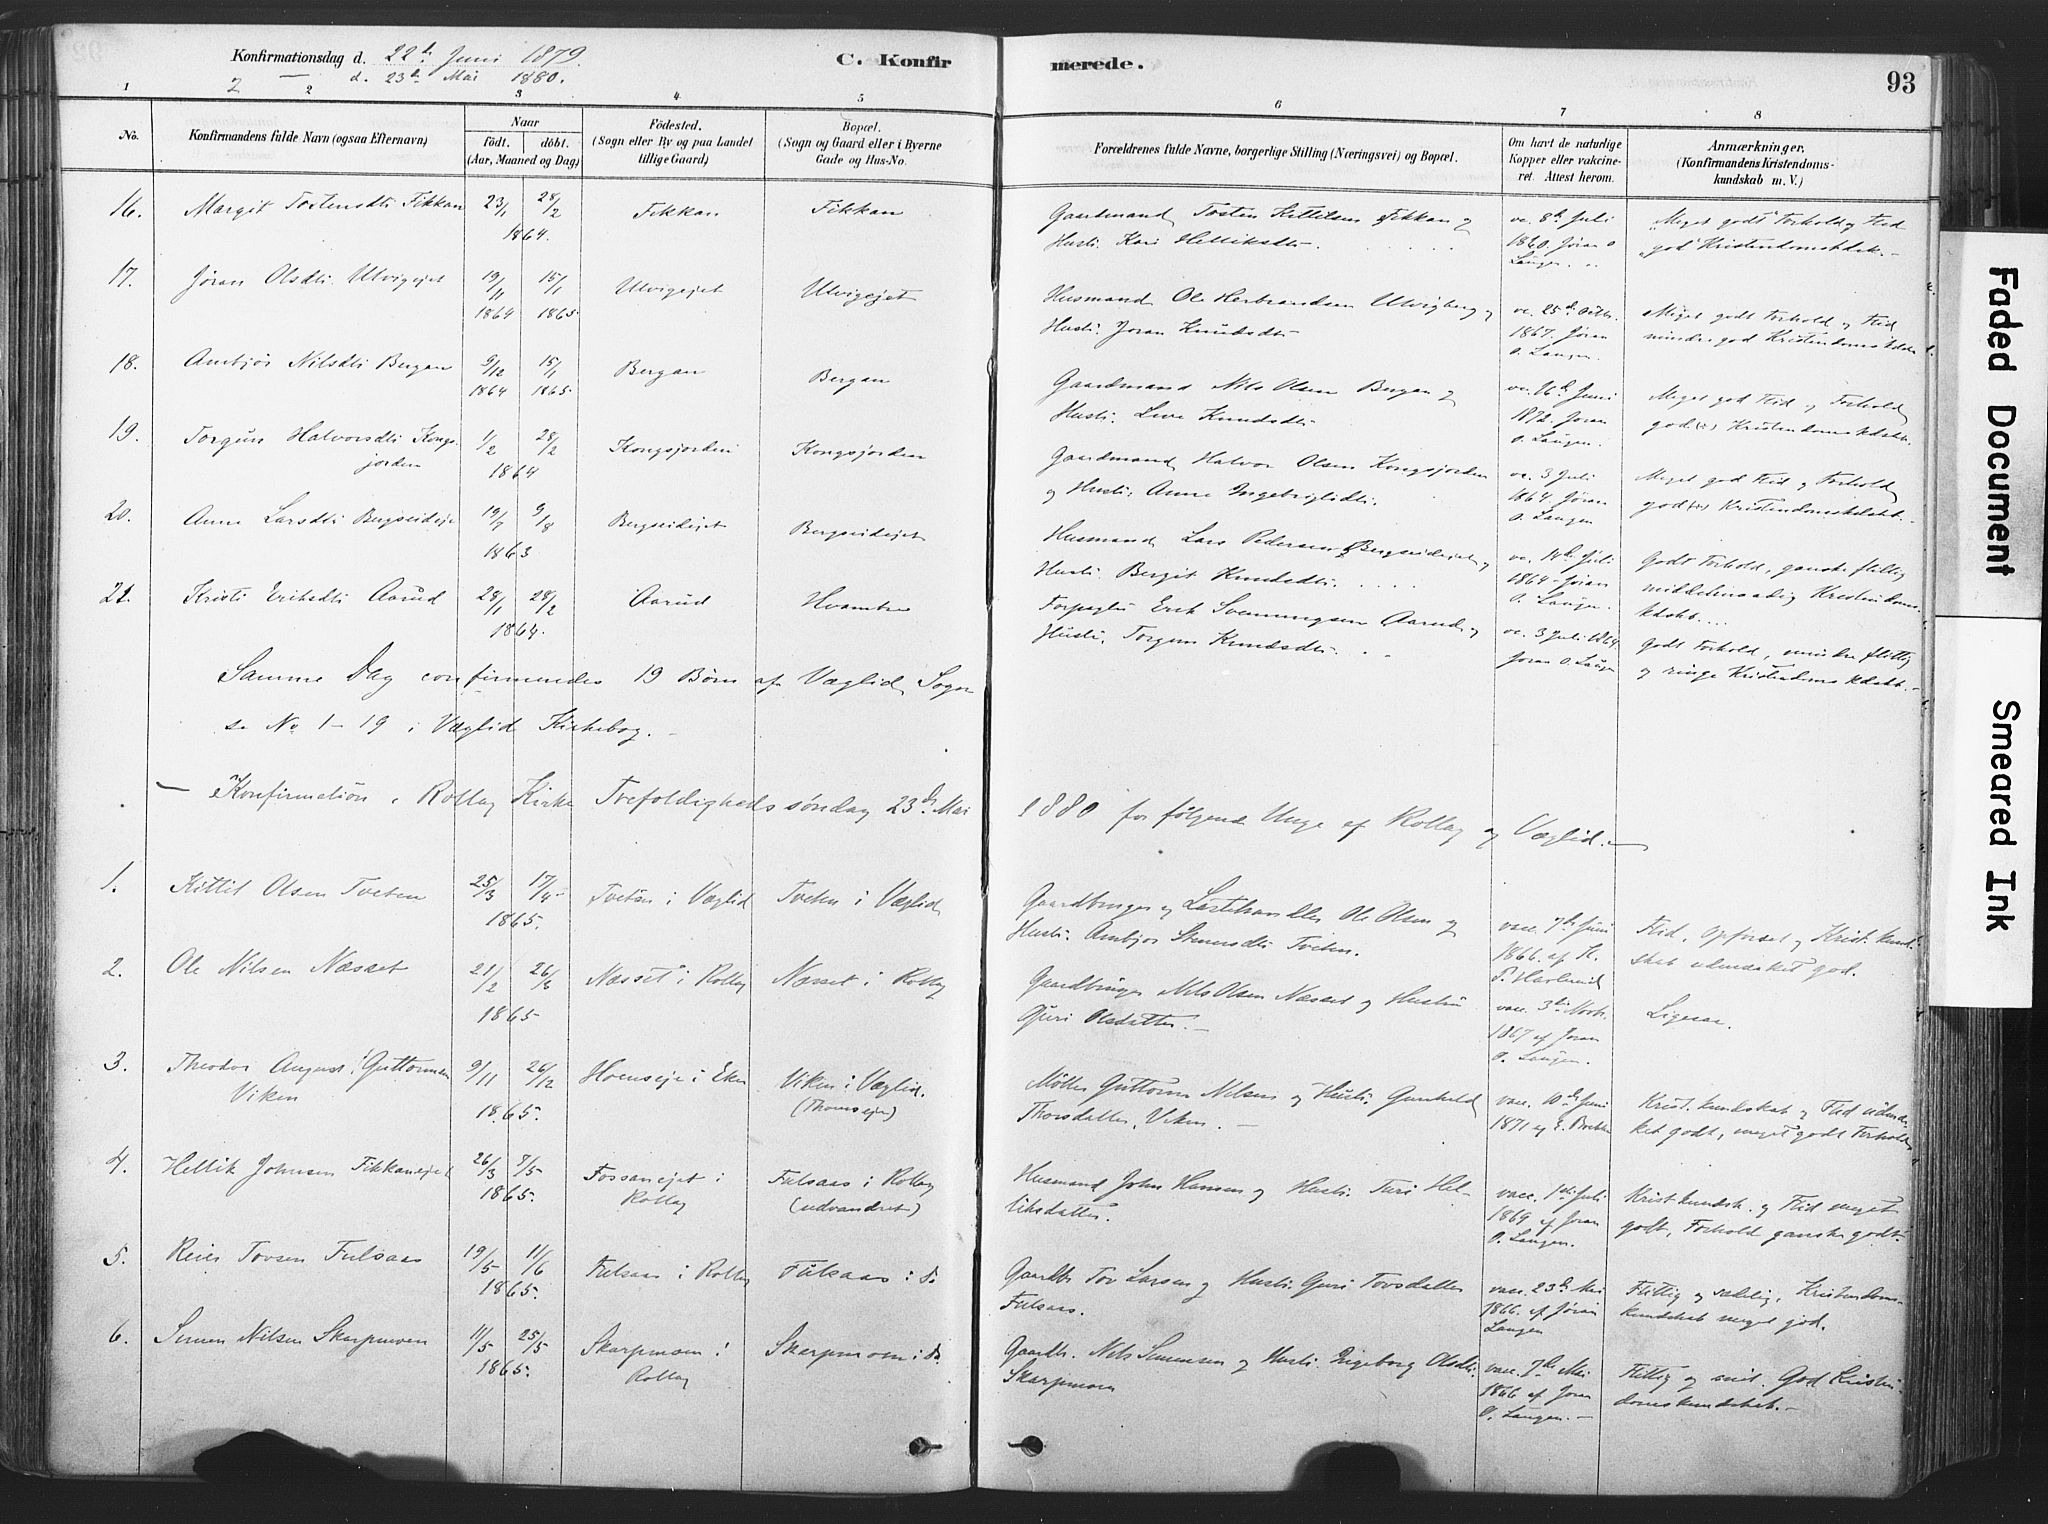 Konfirmationsdag d. 22de Juni 1879.
2 — d. 23de Mai 1880.
C. Konfirmerede.
93
1 2 3 4 5 6 7 8
No.
Konfirmandens fulde Navn (ogsaa Efternavn)
Naar
födt. döbt.
(Aar, Maaned og Dag)
Födested.
(Sogn eller By og paa Landet
tillige Gaard)
Bopæl.
(Sogn og Gaard eller i Byerne
Gade og Hus-No.
Forældrenes fulde Navne, borgerlige Stilling (Næringsvei) og Bopæl.
Om havt de naturlige
Kopper eller vakcine-
ret. Attest herom.
Anmærkninger.
(Konfirmandens Kristendoms-
kundskab m. V.)
16. Margit Tostensdtr Fikkan 23/1 28/2 1864. Fikkan Fikkan
Gaardmand Tosten Kittilsen Fikkan og
Hustr. Kari Helliksdtr.
vc. 8de Juli
1860. Jöran O
Laugen.
Meget godt Forhold og Flid
god Kristendomskdsk.
17. Jöran Olsdtr. Ulvigejet 19/11 1864 15/1 1865 Ulvigejet Ulvigejet
Husmand Ole Herbrandsen Ulvigberg og
Hustr. Joran Knudsdtr
vc. 25de Octbr.
1867. Jöran
O. Laugen.
Meget godt Forhold og Flid
mindre god Kristendomskdskb
18. Ambjör Nilsdtr Bergan 9/12 1864 15/1 1865. Bergan Bergan
Gaardmand Nils Olsen Bergan og
Hustr. Live Knudsdtr
vc. 16de Juni
1872. Joran
O. Laugen.
Meget god Flid og Forhold
god Kristendomskdskb.
19. Torgun Halvorsdtr Kongs-
jorden 1/2 28/2 1864 Kongsjorden Kongsjorden
Gaardmand Halvor Olsen Kongsjorden
og Hustr. Anne Ingebrigtsdtr.
vc. 3 Juli
1864. Jöran
O. Laugen
Meget god Flid og Forhold
god Kristendomskdskb.
20. Anne Larsdtr Bergseideje 19/7 9/8 1863 Bergseidejet Bergseidejet
Husmand Lars Pedersen Bergseidejet og
Hustr. Bergit Knudsdtr.
vc. 18de Juli
1864 Jöran
O. Laugen.
Godt Forhold, ganske flittig
middelmaadig Kristendoms-
kdskb.
21. Kristi Eriksdtr Aarud 28/1 28/2 1864. Aarud Hvambre
Erik Svenningsen Aarud og
Hustr. Torgun Knudsdtr.
vc. 3 Juli 1864.
Joran O. Laugen
Godt Forhold, mindre flittig
og ringe Kristendomskdskb.
Samme Dag confirmerdes 19 Børn af Væglid Sogn
se No 1–19 i Væglid Kirkebog.
— Konfirmation i Rollag Kirke Trefoldighedssøndag 23de Mai
1880 for følgende Unge af Rollag og Væglid.
1. Kittil Olsen Tveten 25/3 17/4 1865. Tveten i Væglid Tveten i Væglid
Gaardbruger og Lestehandler Ole Olsen og
Hustr. Ambjør Stenersdtr Tveten.
vacc. 7de Juni
1866. af K.
P. Harlund
Flid, opførsel og Krist. kund-
skab udmærket god.
2. Ole Nilsen Næsset 21/2 26/3 1865 Næsset i Rollag Næsset i Rollag
Gaardbruger Nils Olsen Næsset og Hustru
Guri Olsdatter.
vacc. 3die Novb.
1867 af Joran
O. Laugen.
Ligesaa.
3. Theodor August Guttormsen
Viken 9/11 26/12 1865. Hoenseje i Eker Viken i Væglid.
(Thomseje)
Møller Guttorm Nilsen og Hustr. Gunhild
Thorsdatter, Viken.
vacc. 10de Juni
1871 af
Krist. kundskab og Flid udmær-
ket godt, meget godt Forhold.
4. Hellik Johnsen Fikkanejet 26/3 7/5 1865. Fossanejet i
Rollag Fulsaas i Rollag
(udvandret)
Husmand John Hansen og Hustr. Turi Hel-
liksdatter.
vacc. 1ste Juli
1869 af Joran
O. Laugen.
Krist. kundsk. og Flid meget
godt, Forhold ganske godt.
5. Reier Tovsen Fulsaas 19/5 11/6 1865. Fulsaas i Rollag Fulsaas i Do
Gaardbr Tov Larsen og Hustr. Guri Tovsdatter
Fulsaas.
vacc. 23de Mai
1866. af Jöran
Laugen
Flittig og sædelig, Kristendoms-
kundskab meget god.
6. Simen Nilsen Skarpmoen 11/5 25/5 1865. Skarpmoen i
Rollag Skarpmoen i Do.
Gaardbr. Nils Simensen og Hustr. Ingeborg Olsdtr.
Skarpmoen
vacc. 7de Mai
1866 af Joran
O. Laugen.
Flittig og snil. God Kristen-
domskundskab.
Faded Document
Smeared Ink